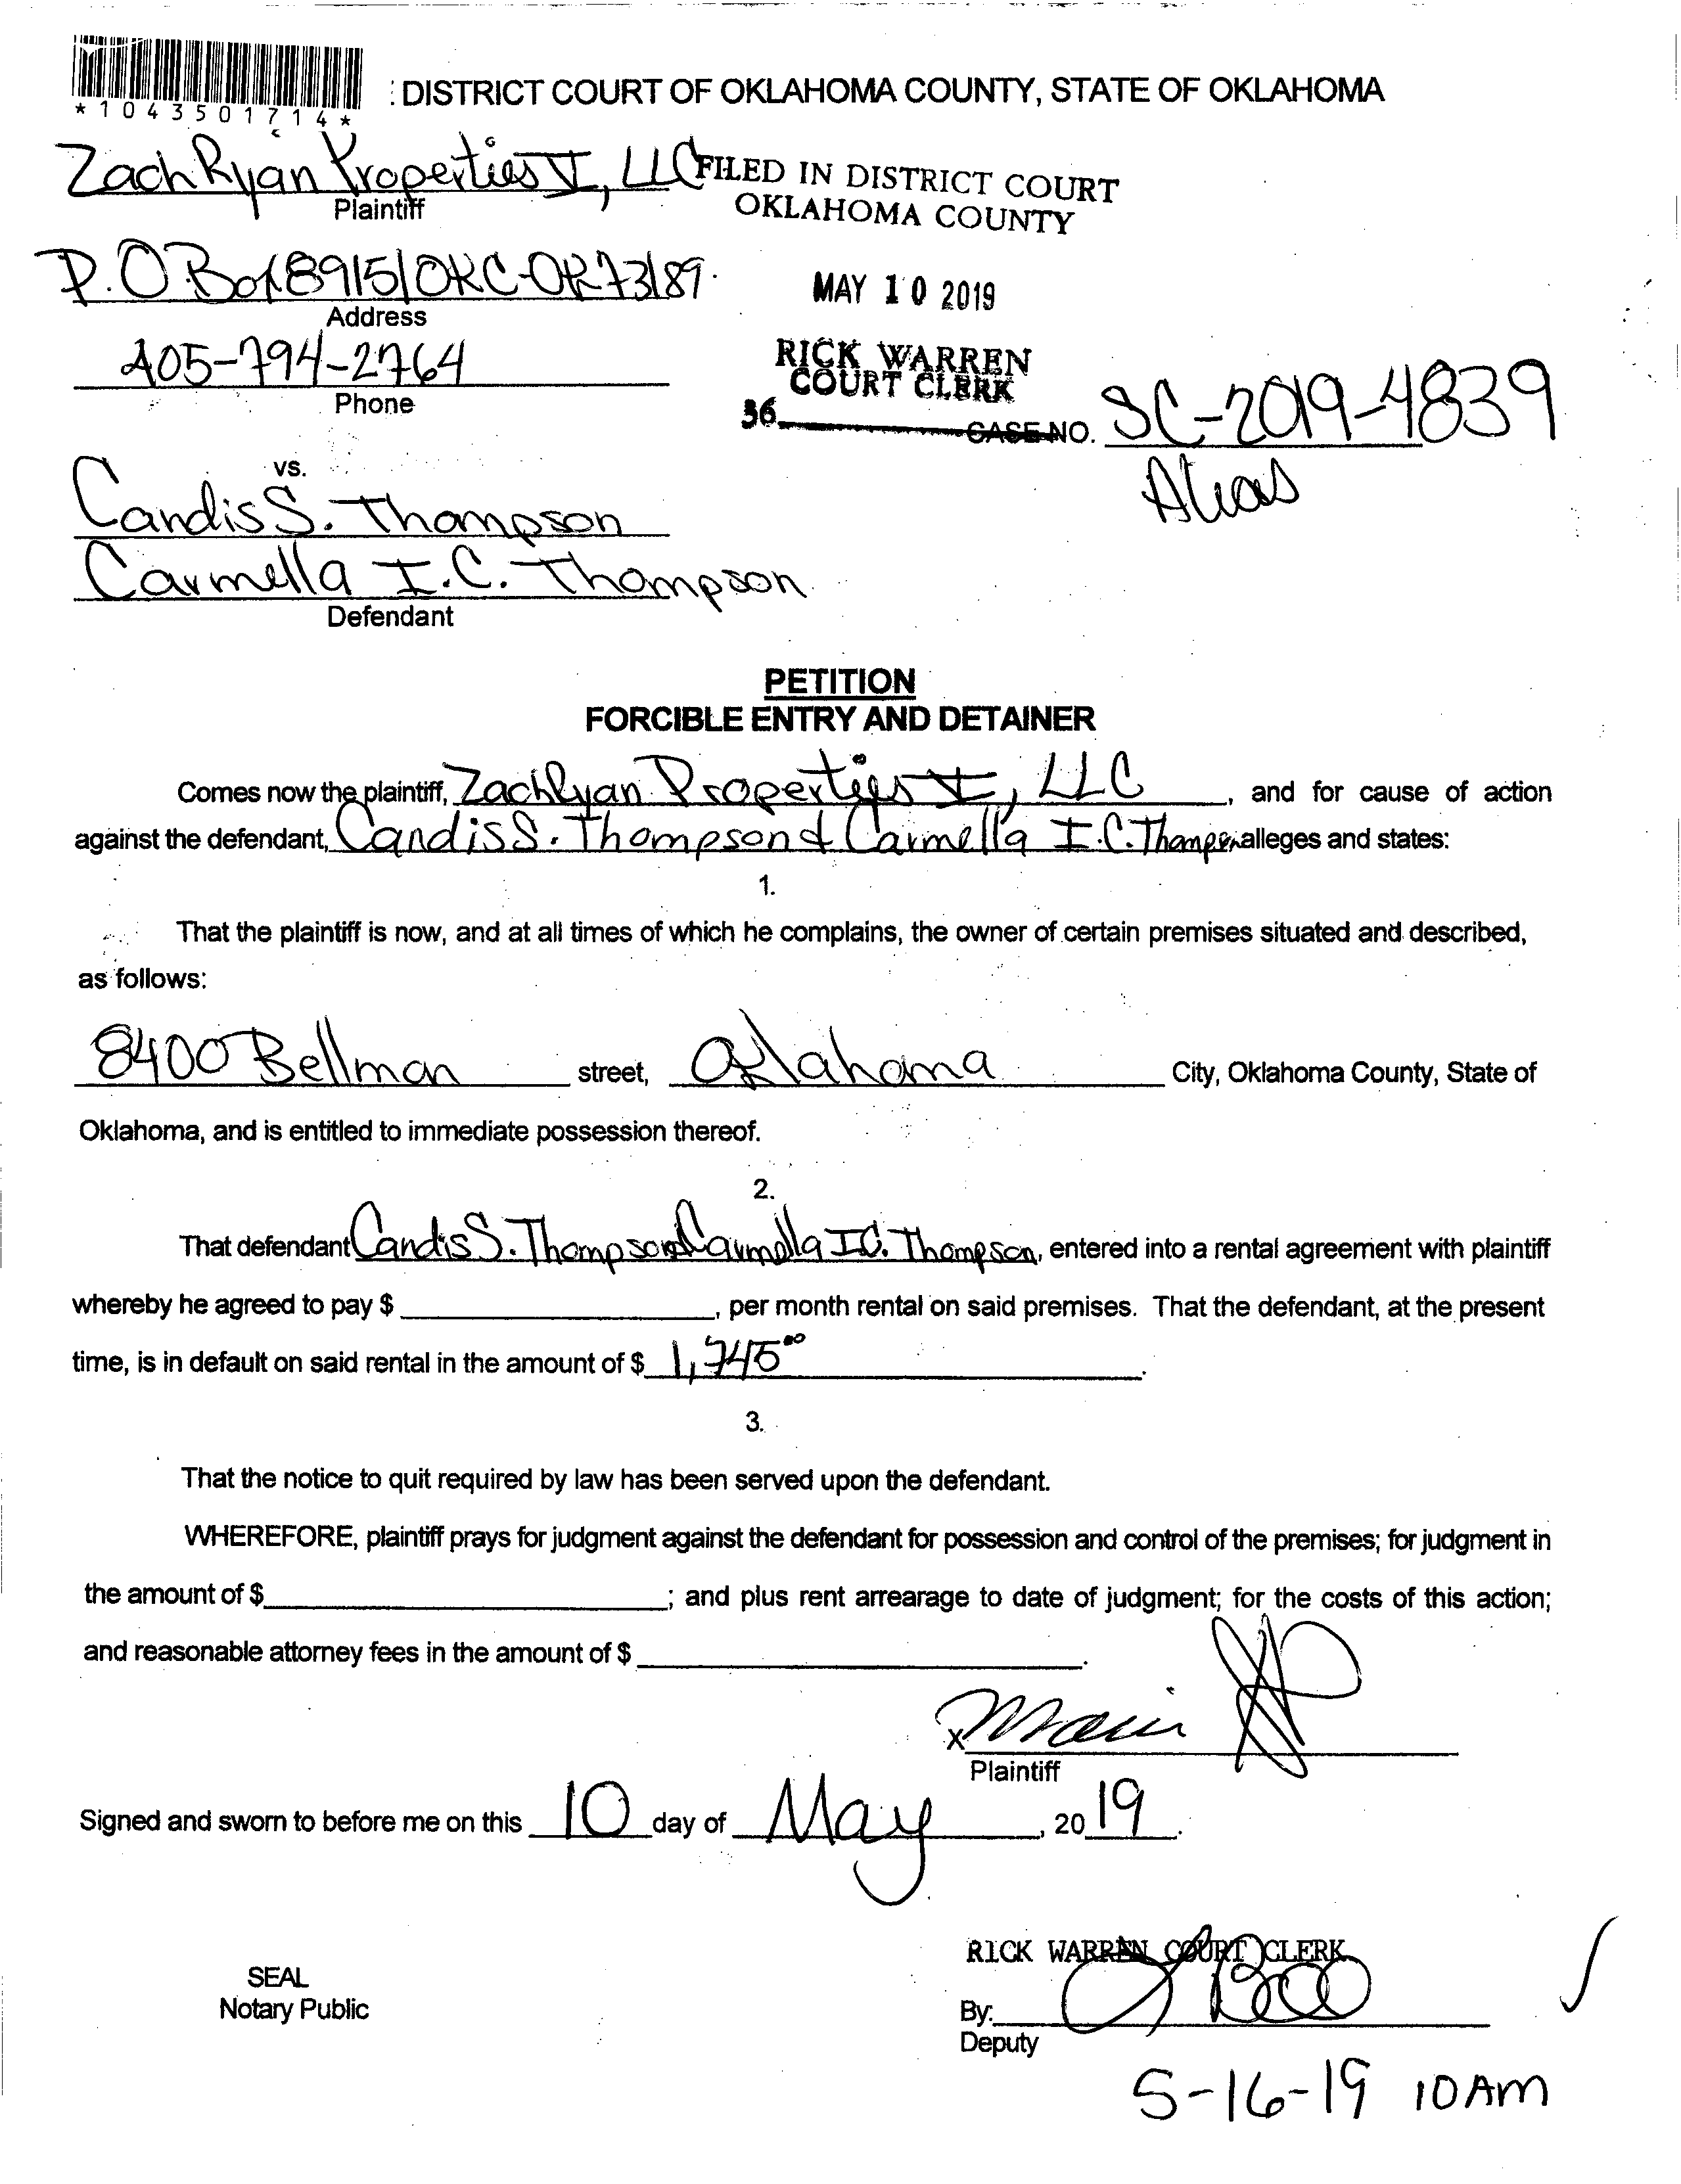 *1043501714*
: DISTRICT COURT OF OKLAHOMA COUNTY, STATE OF OKLAHOMA
ZachRyan Properties I, LLC
Plaintiff
FILED IN DISTRICT COURT
OKLAHOMA COUNTY
P.O Box 89151 OKC-OK 73189.
Address
MAY 10 2019
405-794-2764
Phone
RICK WARREN
COURT CLERK
36
CASE NO. SC-2019-4839
Alias
vs.
Candis S. Thompson
Carmella I.C. Thompson
Defendant
PETITION
FORCIBLE ENTRY AND DETAINER
Comes now the plaintiff, ZachRyan Properties I, LLC, and for cause of action
against the defendant, Candis S. Thompson & Carmella I.C. Thompson alleges and states:
1.
That the plaintiff is now, and at all times of which he complains, the owner of certain premises situated and described,
as follows:
8400 Bellman street, Oklahoma City, Oklahoma County, State of
Oklahoma, and is entitled to immediate possession thereof.
2.
That defendant Candis S. Thompson and Carmella I.C. Thompson, entered into a rental agreement with plaintiff
whereby he agreed to pay $ , per month rental on said premises. That the defendant, at the present
time, is in default on said rental in the amount of $ 1,745.00.
3.
That the notice to quit required by law has been served upon the defendant.
WHEREFORE, plaintiff prays for judgment against the defendant for possession and control of the premises; for judgment in
the amount of $ ; and plus rent arrearage to date of judgment; for the costs of this action;
and reasonable attorney fees in the amount of $ .
X
Plaintiff
Signed and sworn to before me on this 10 day of May, 20 19.
RICK WARREN COURT CLERK
SEAL
Notary Public
By:
Deputy
5-16-19 10AM